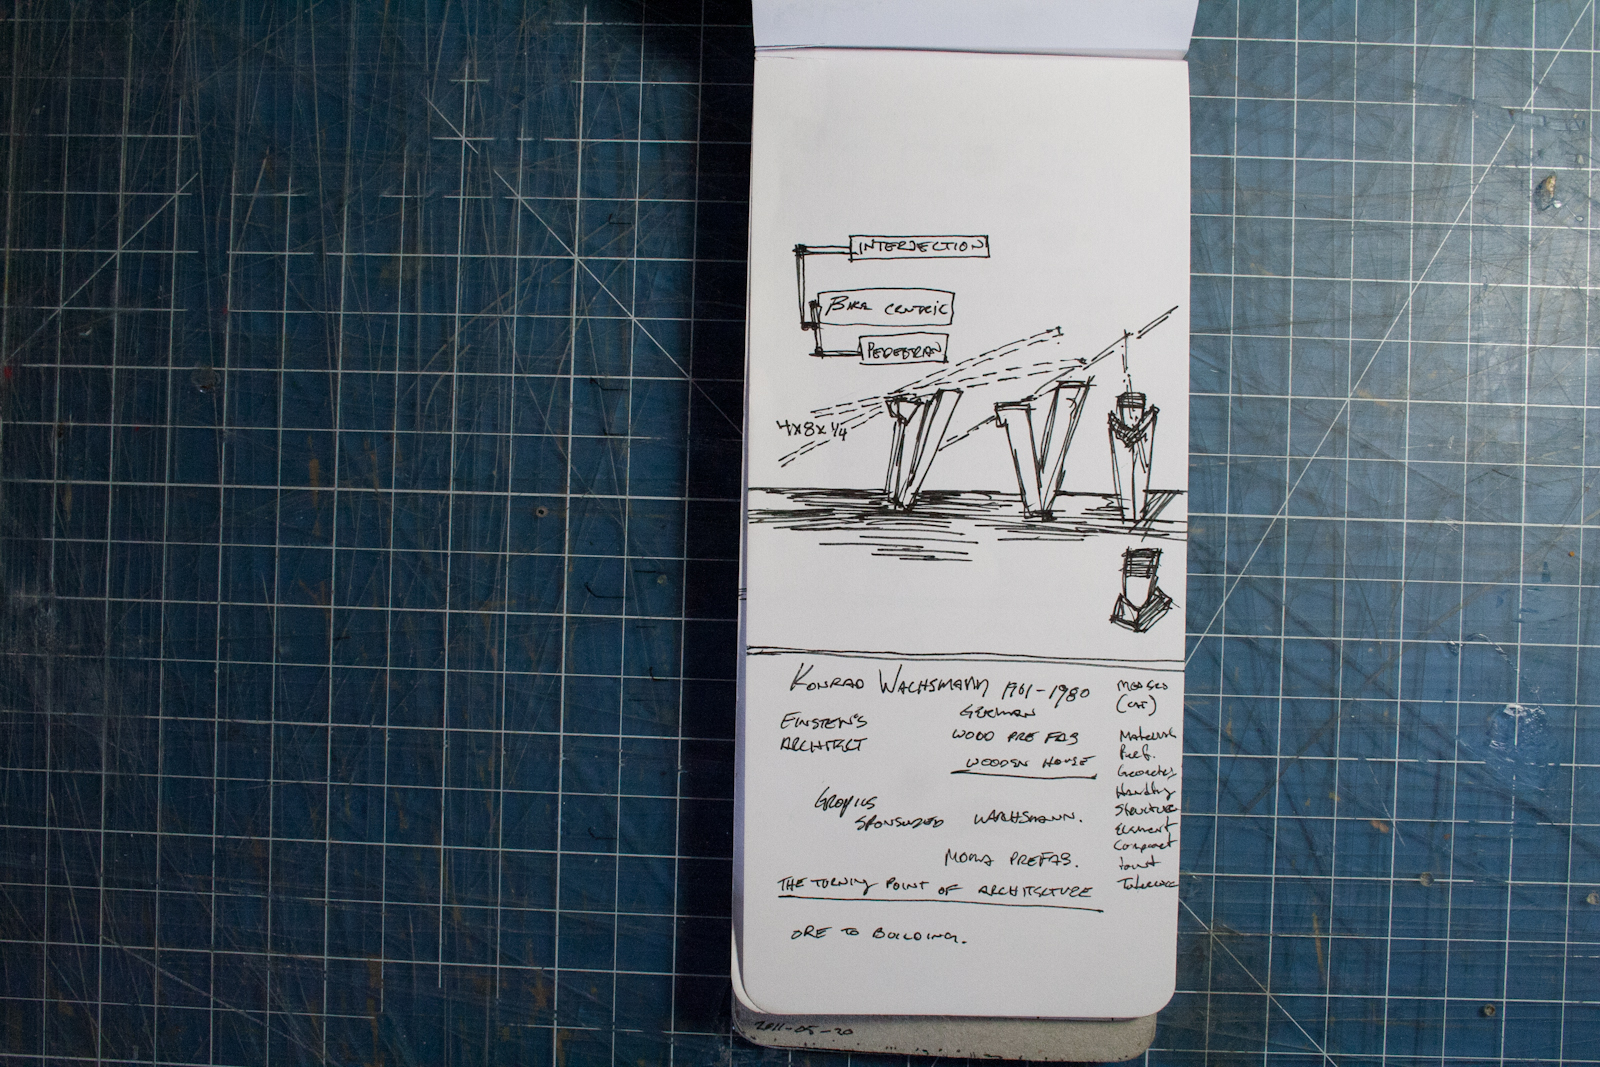 INTERJECTION
BIKE CENTRIC
PEDESTRAN
4x8x1/4
KONRAD WACHSMANN 1901-1980
EINSTEIN'S
ARCHITECT
GERMAN
WOOD PRE FAB
WOODEN HOUSE
GROPIUS
SPONSORED WACHSMANN.
PREFAB.
THE TURNING POINT OF ARCHITECTURE
ORE TO BUILDING.
Materials
Perf.
Geometry
Handling
Structure
Element
Component
Joint
Tolerance
2011-05-20